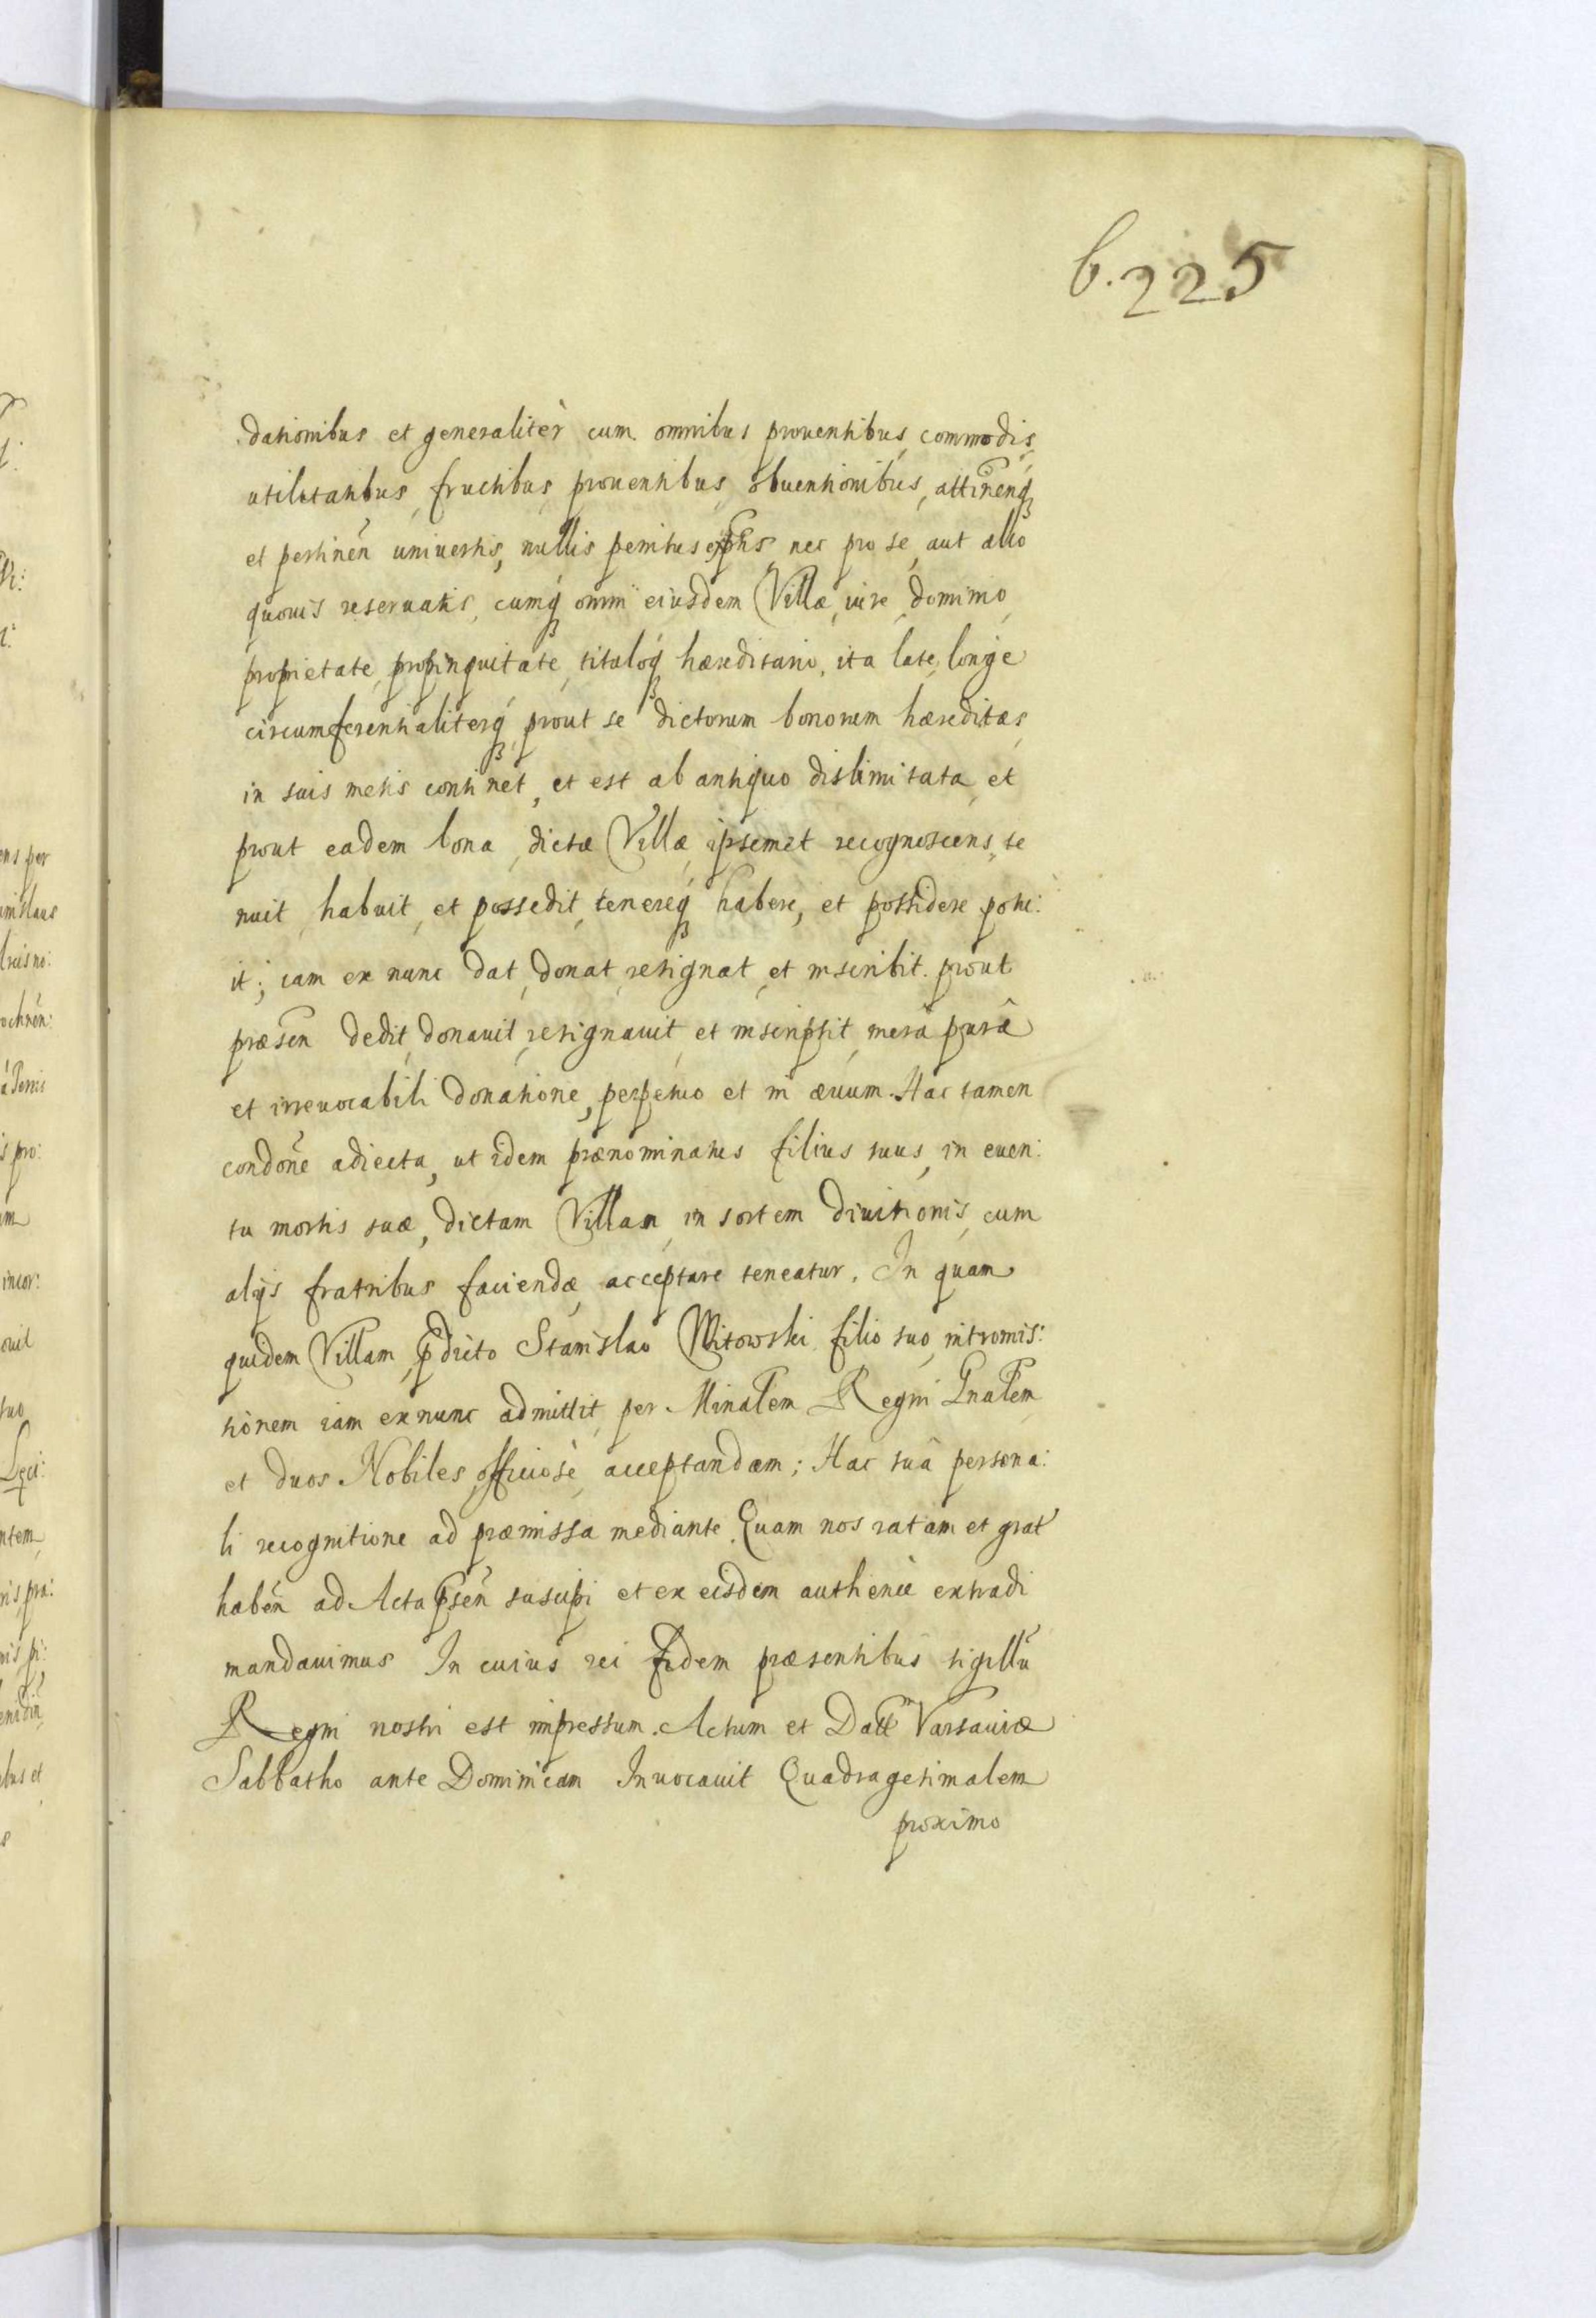 b. 225
dationibus et generalitèr cum omnibus prouentibus, commodis,
utilitatibus, fructibus, prouentibus, obuentionibus, attinenq́
et pertinen̄ uniuersis, nullis penitus exp̄tis nec pro se, aut alio
quouis reseruatis, cumq́ omni eiusdem Villæ, iure, dominio,
proprietate, propinquitate, tituloq́ hæreditario, ita late, longe
circumferentialiterq́, prout se dictorum bonorum hæreditas,
in suis metis continet, et est ab antiquo dislimitata, et
prout eadem bona, dictæ Villæ, ipsemet recognoscens, te
nuit, habuit, et possedit, tenereq́, habere, et possidere potu:
it; iam ex nunc dat, donat, resignat, et inscribit. prout
præsen̄ dedit, donauit, resignauit, et inscripsit, merâ purâ
et irreuocabili donatione, perpetuo et in æuum. Hac tamen
condōne adiecta, ut idem prænominatus filius suus, in euen:
tu mortis suæ, dictam Villam, in sortem diuisionis, cum
alijs fratribus faciendæ, acceptare teneatur. In quam
quidem Villam, p̄dicto Stanislao Witowski filio suo, intromis:
sionem iam ex nunc admittit, per Minalem Regni Gnalem
et duos Nobiles, officiosè, acceptandam; Hac suâ persona:
li recognitione ad præmissa mediante. Quam nos ratam et grat̄
habēn ad Acta p̄sēn suscipi et ex eisdem authenīce extradi
mandauimus In cuius rei fidem præsentibus sigillū
Regni nostri est impressum. Actum et Datt Varsauiæ
Sabbatho ante Dominicam Inuocauit Quadragesimalem
proximo